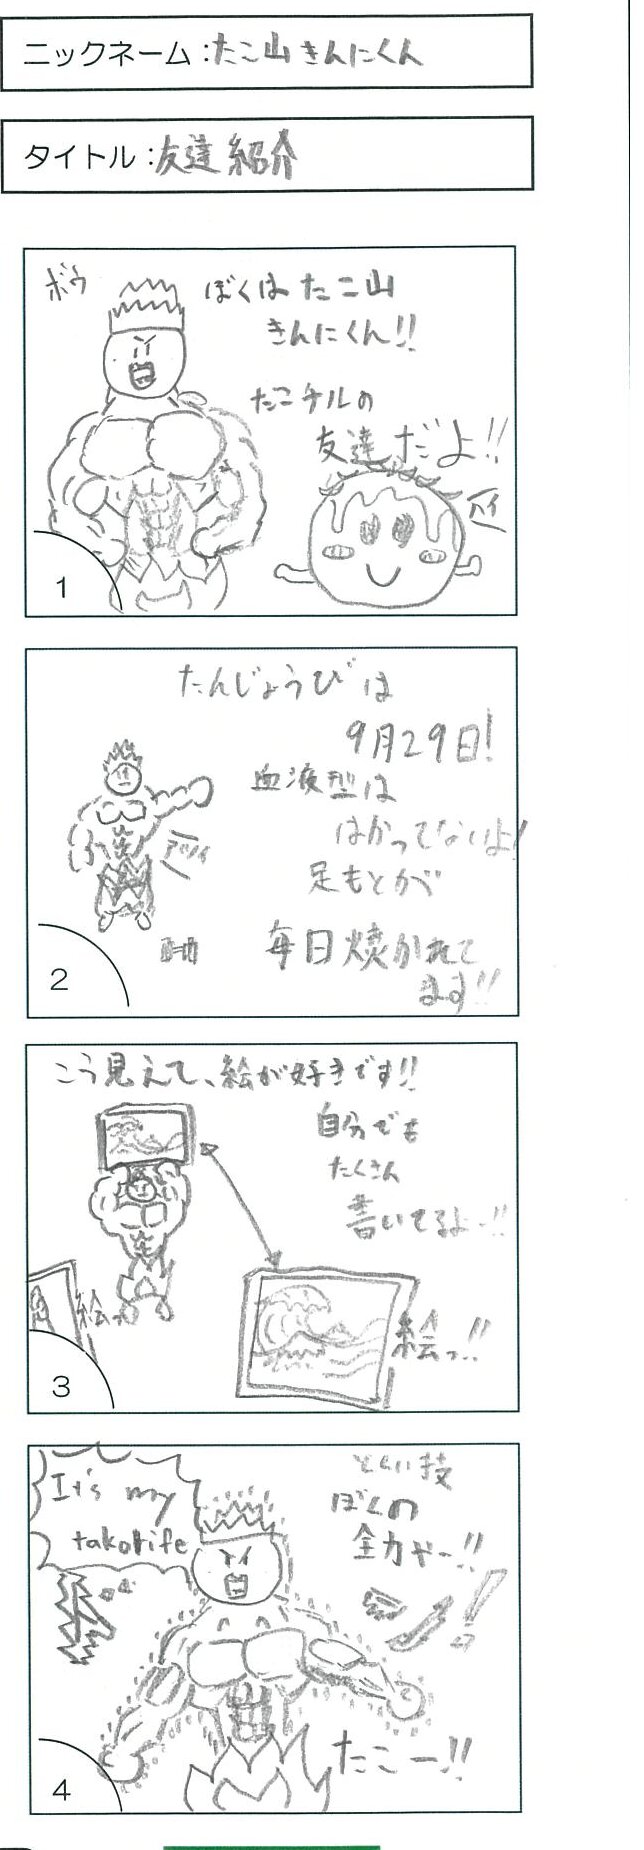 ニックネーム:たこ山きんにくん
タイトル:友達紹介
ボウ
ぼくはたこ山
きんにくん!!
たこチルの
友達だよ!!
ハイ
1
たんじょうびは
9月29日!
血液型は
はかってないよ!
足もとが
毎日焼かれて
ます!!
アツイ
2
こう見えて、絵が好きです!!
自分でも
たくさん
書いてるよー!!
絵っ
絵っ!!
3
It's my
takorife
とくい技
ぼくの
全力やー!!
たこー!!
4